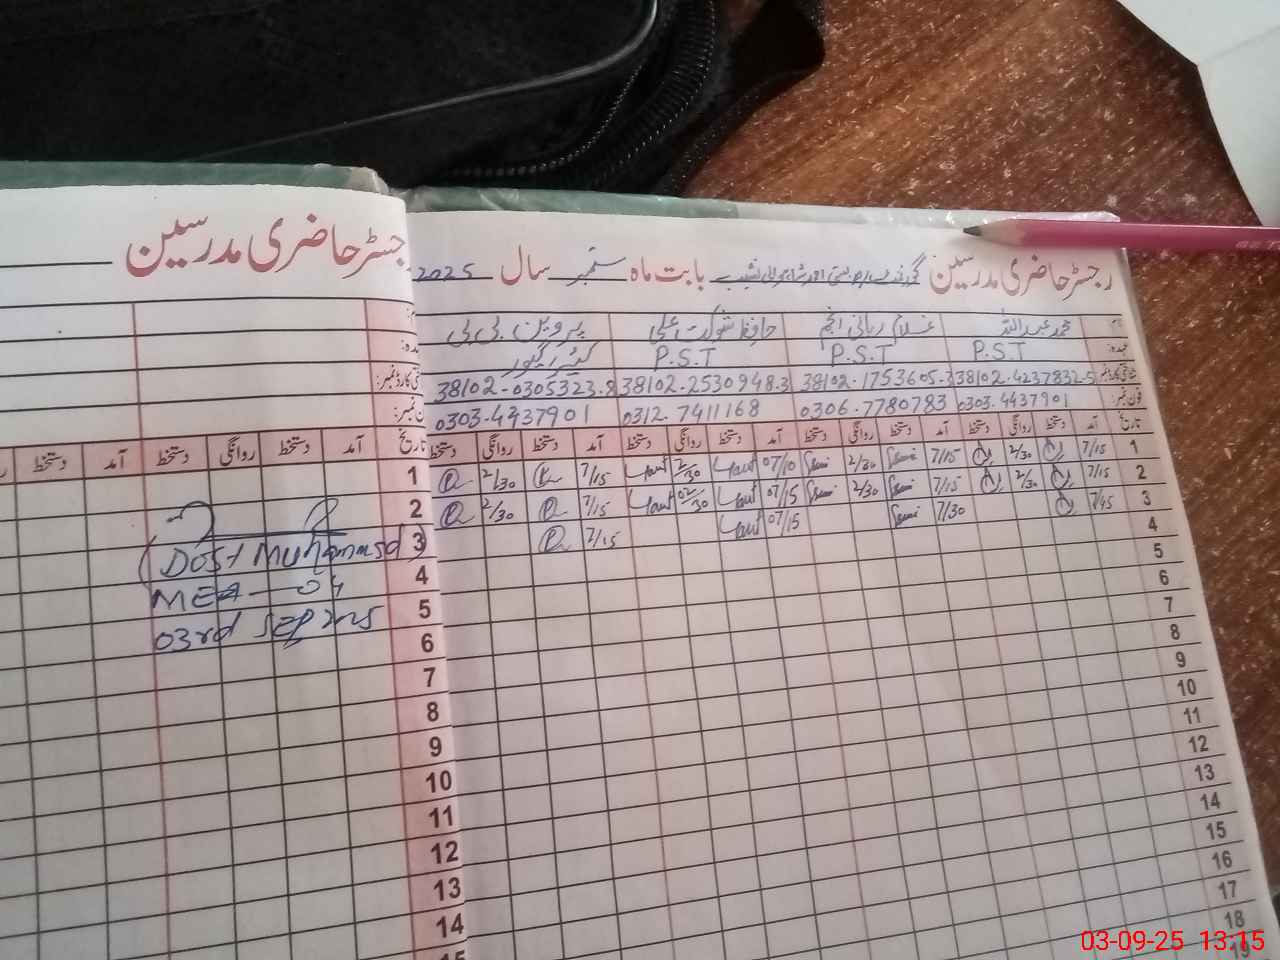 رجسٹر حاضری مدرسین
رجسٹر حاضری مدرسین بابت ماہ ستمبر سال 2025
نام: محمد عبداللہ غلام ربانی انجم حافظ شوکت علی پروین بی بی
عہدہ: P.S.T P.S.T P.S.T کیئر گیور
شناختی کارڈ نمبر: 38102-4237832-5 38102-1753605-3 38102-2530948-3 38102-0305323-8
فون نمبر: 0303-4437901 0306-7780783 0312-7411168 0303-4437901
تاریخ آمد دستخط روانگی دستخط آمد دستخط روانگی دستخط آمد دستخط روانگی دستخط آمد دستخط روانگی دستخط
1 7/15 2/30 7/15 2/30 07/10 2/30 7/15 2/30
2 7/15 2/30 7/15 2/30 07/15 02/30 7/15 2/30
3 7/45 7/30 07/15 7/15
4
5
6
7
8
9
10
11
12
13
14
15
16
17
18
19
عہدہ:
شناختی کارڈ نمبر:
فون نمبر:
تاریخ آمد دستخط روانگی دستخط آمد دستخط
1
2
3
(Dost Muhammad)
4
MEA-04
5
03rd Sep 2025
6
7
8
9
10
11
12
13
14
15
03-09-25 13:15